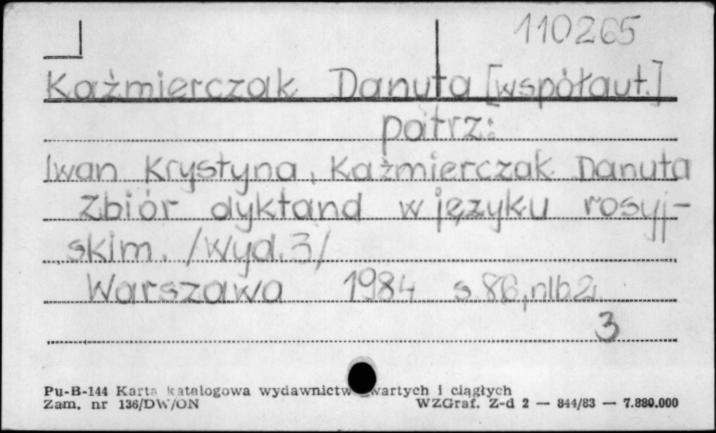 110265
Kaźmierczak Danuta [współaut.]
patrz:
Iwan Krystyna, Kaźmierczak Danuta
Zbiór dyktand w języku rosyj-
skim. /Wyd. 3/
Warszawa 1984 s. 86, nlb 2.
3
Pu-B-144 Karta katalogowa wydawnictw zwartych i ciągłych
Zam. nr 136/DW/ON WZGraf. Z-d 2 — 844/83 — 7.880.000